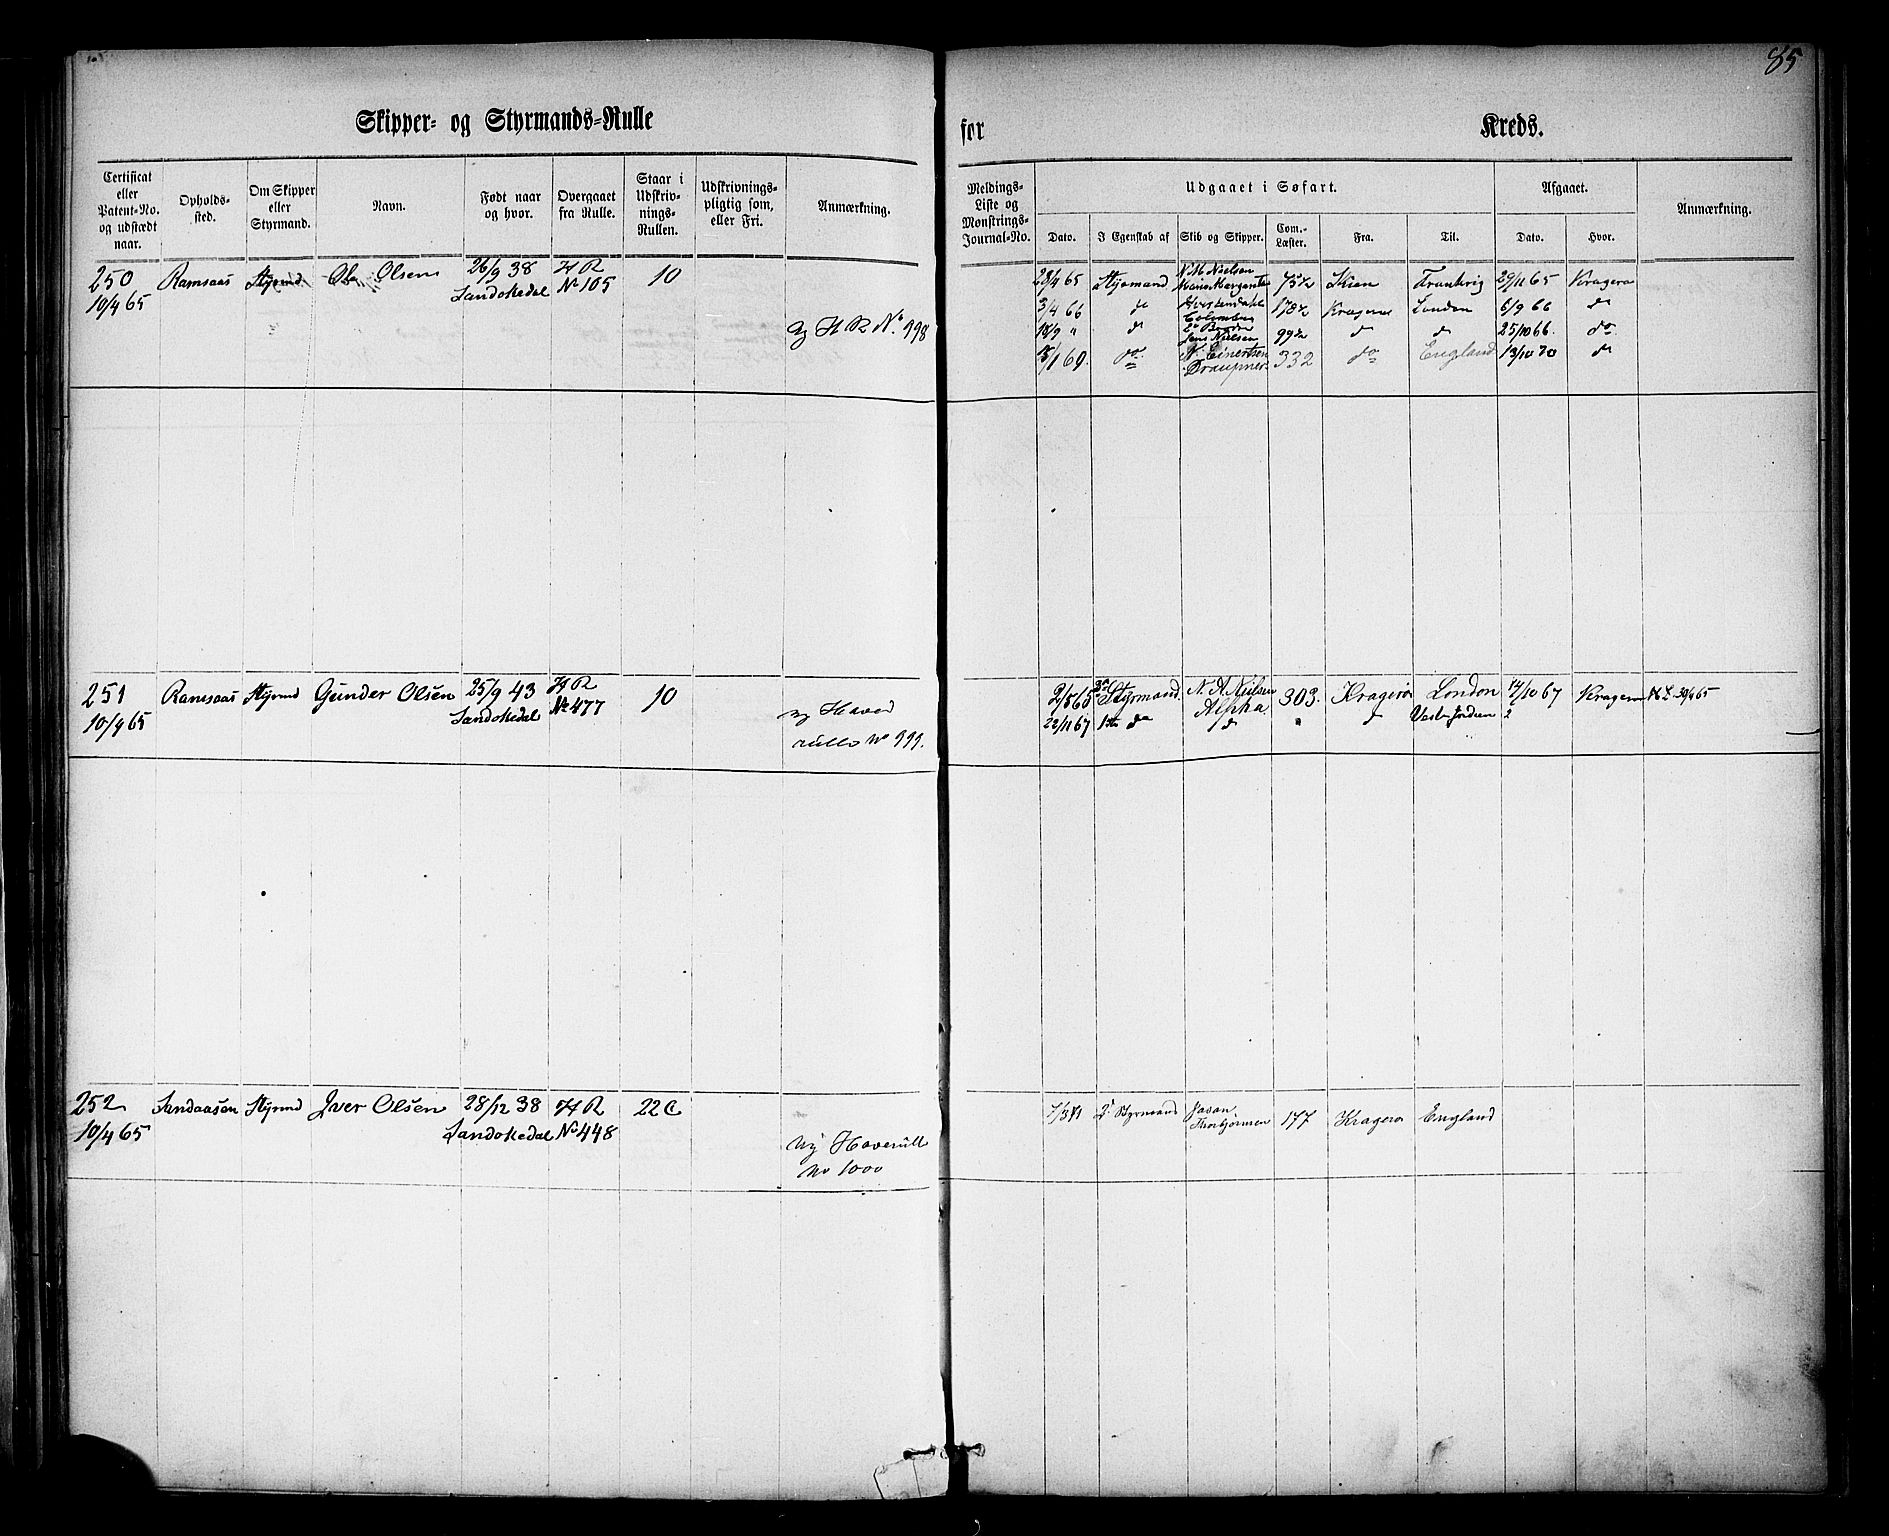 85
Skipper- og Styrmands-Rulle
for
Kreds.
Certificat eller Patent-No. og udstædt naar.
Opholds-sted.
Om Skipper eller Styrmand.
Navn.
Født naar og hvor.
Overgaaet fra Rulle.
Staar i Udskriv-nings-Rullen.
Udskrivnings-pligtig som, eller Fri.
Anmærkning.
Meldings-Liste og Mønstrings-Journal-No.
Udgaaet i Søfart.
Dato.
I Egenskab af
Skib og Skipper.
Com.-Læster.
Fra.
Til.
Afgaaet.
Dato.
Hvor.
Anmærkning.
250 Ramsaas Styrmd Ola Olsen 26/9 38 H R 10
10/4 65 Sandøkedal No 105
Ny H R No 998
28/4 65 Styrmand N. M. Nielsen Maria Margaretha 75½ Skien Frankrig 29/11 65 Kragerø
3/4 66 do Colombus 178½ Kragerø London 6/9 66 do
10/9 " do Jens Nielsen 99½ do do 25/10 66. do
15/1 69. do N. Einertsen Draupner 332 do England 13/10 70 do
251 Ramsaas Styrmd Gunder Olsen 25/9 43 H R 10
10/4 65 Sandøkedal No 477
Ny Hoved
rulle No 999.
2/5 65 Styrmand N. A. Nielsen Alpha 303. Kragerø London 14/10 67 Kragerø 30/4 65
22/11 67 1ste do do " do Vest-Indien 2
252 Sandaasen Styrmd Iver Olsen 28/12 38 H R 22C
10/4 65 Sandøkedal No 448
Ny Hoverull
No 1000
7/3 71 2. Styrmand Thorbjørnsen 177 Kragerø England